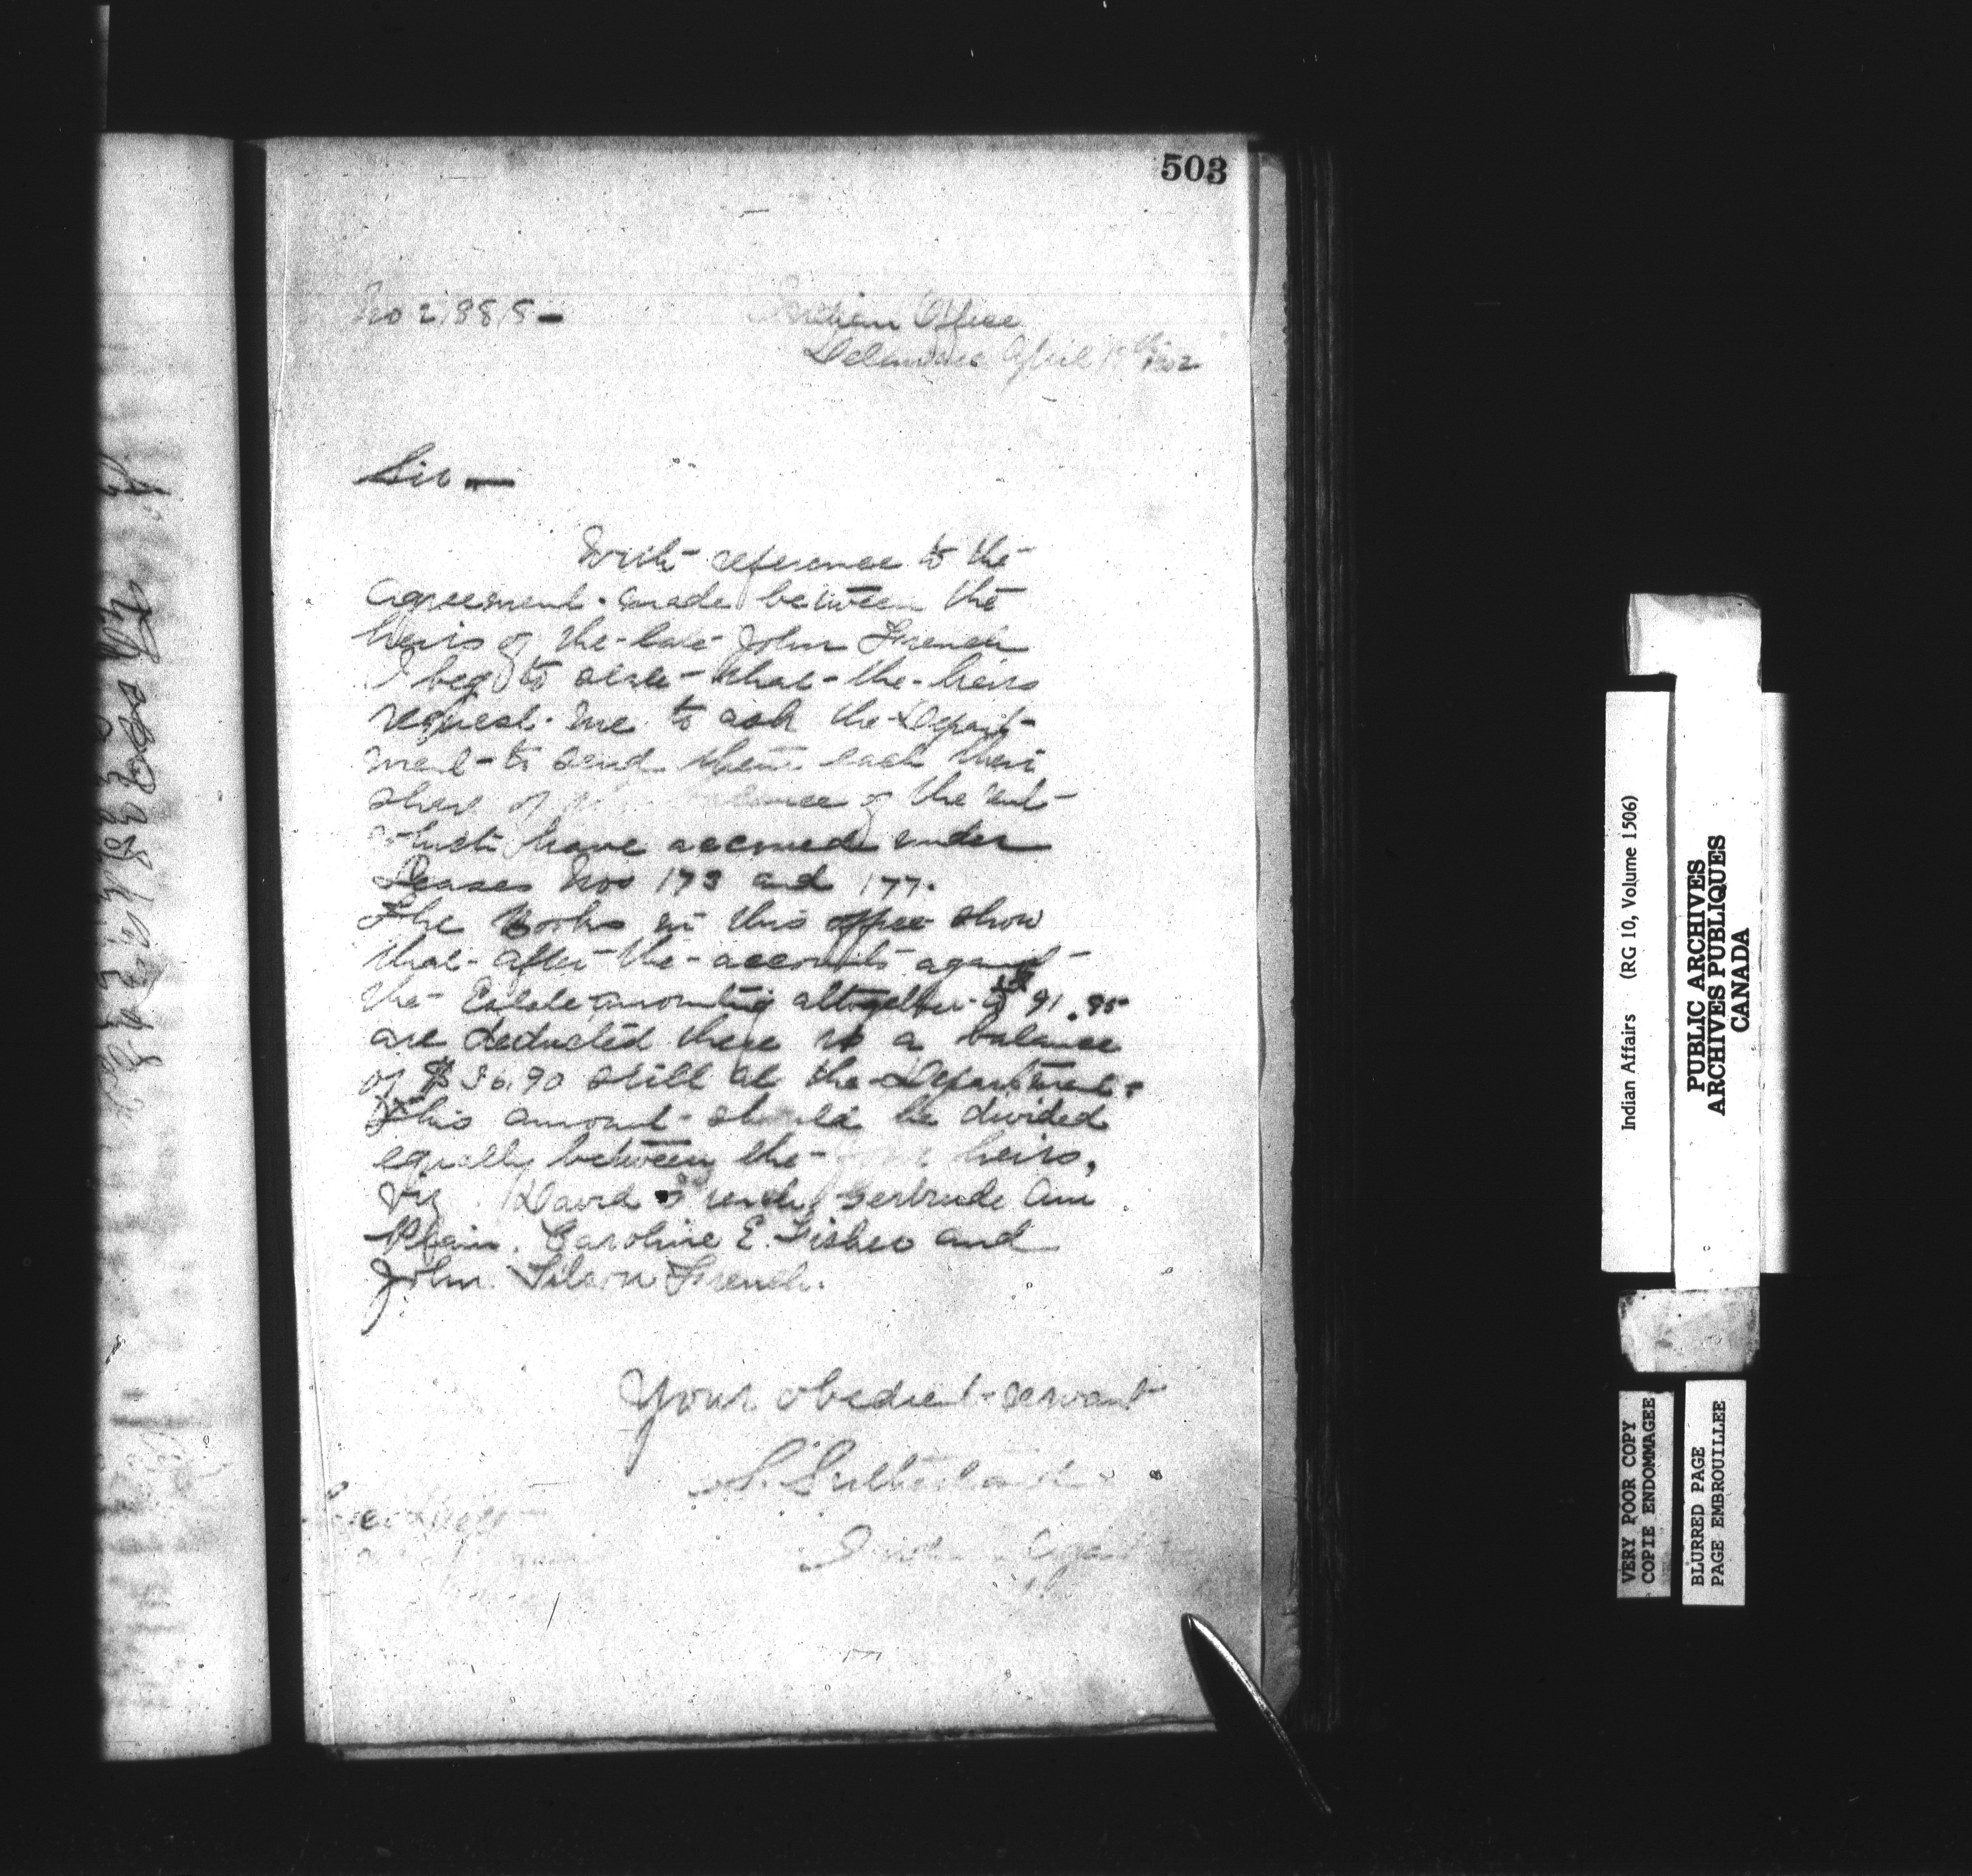 503
Indian Office
Delaware April 1902
Sir —
With reference to the
agreement made between the
heirs of the late John French
I beg to state that the heirs
request me to ask the Depart-
ment to send them each their
share of balance of the rent
which have accrued under
Leases Nos 173 and 177.
The Books in this office show
that after the accounts against
the Estate amounting altogether to $91.95
are deducted there is a balance
of $36.90 still at the Department.
This amount should be divided
equally between the four heirs,
Viz David French, Gertrude Ann
Plain, Caroline E. Fisher and
John French.
Your obedient servant
S. Sutherland
Indian Agent
Indian Affairs (RG 10, Volume 1506)
PUBLIC ARCHIVES
ARCHIVES PUBLIQUES
CANADA
VERY POOR COPY
COPIE ENDOMMAGEE
BLURRED PAGE
PAGE EMBROUILLEE